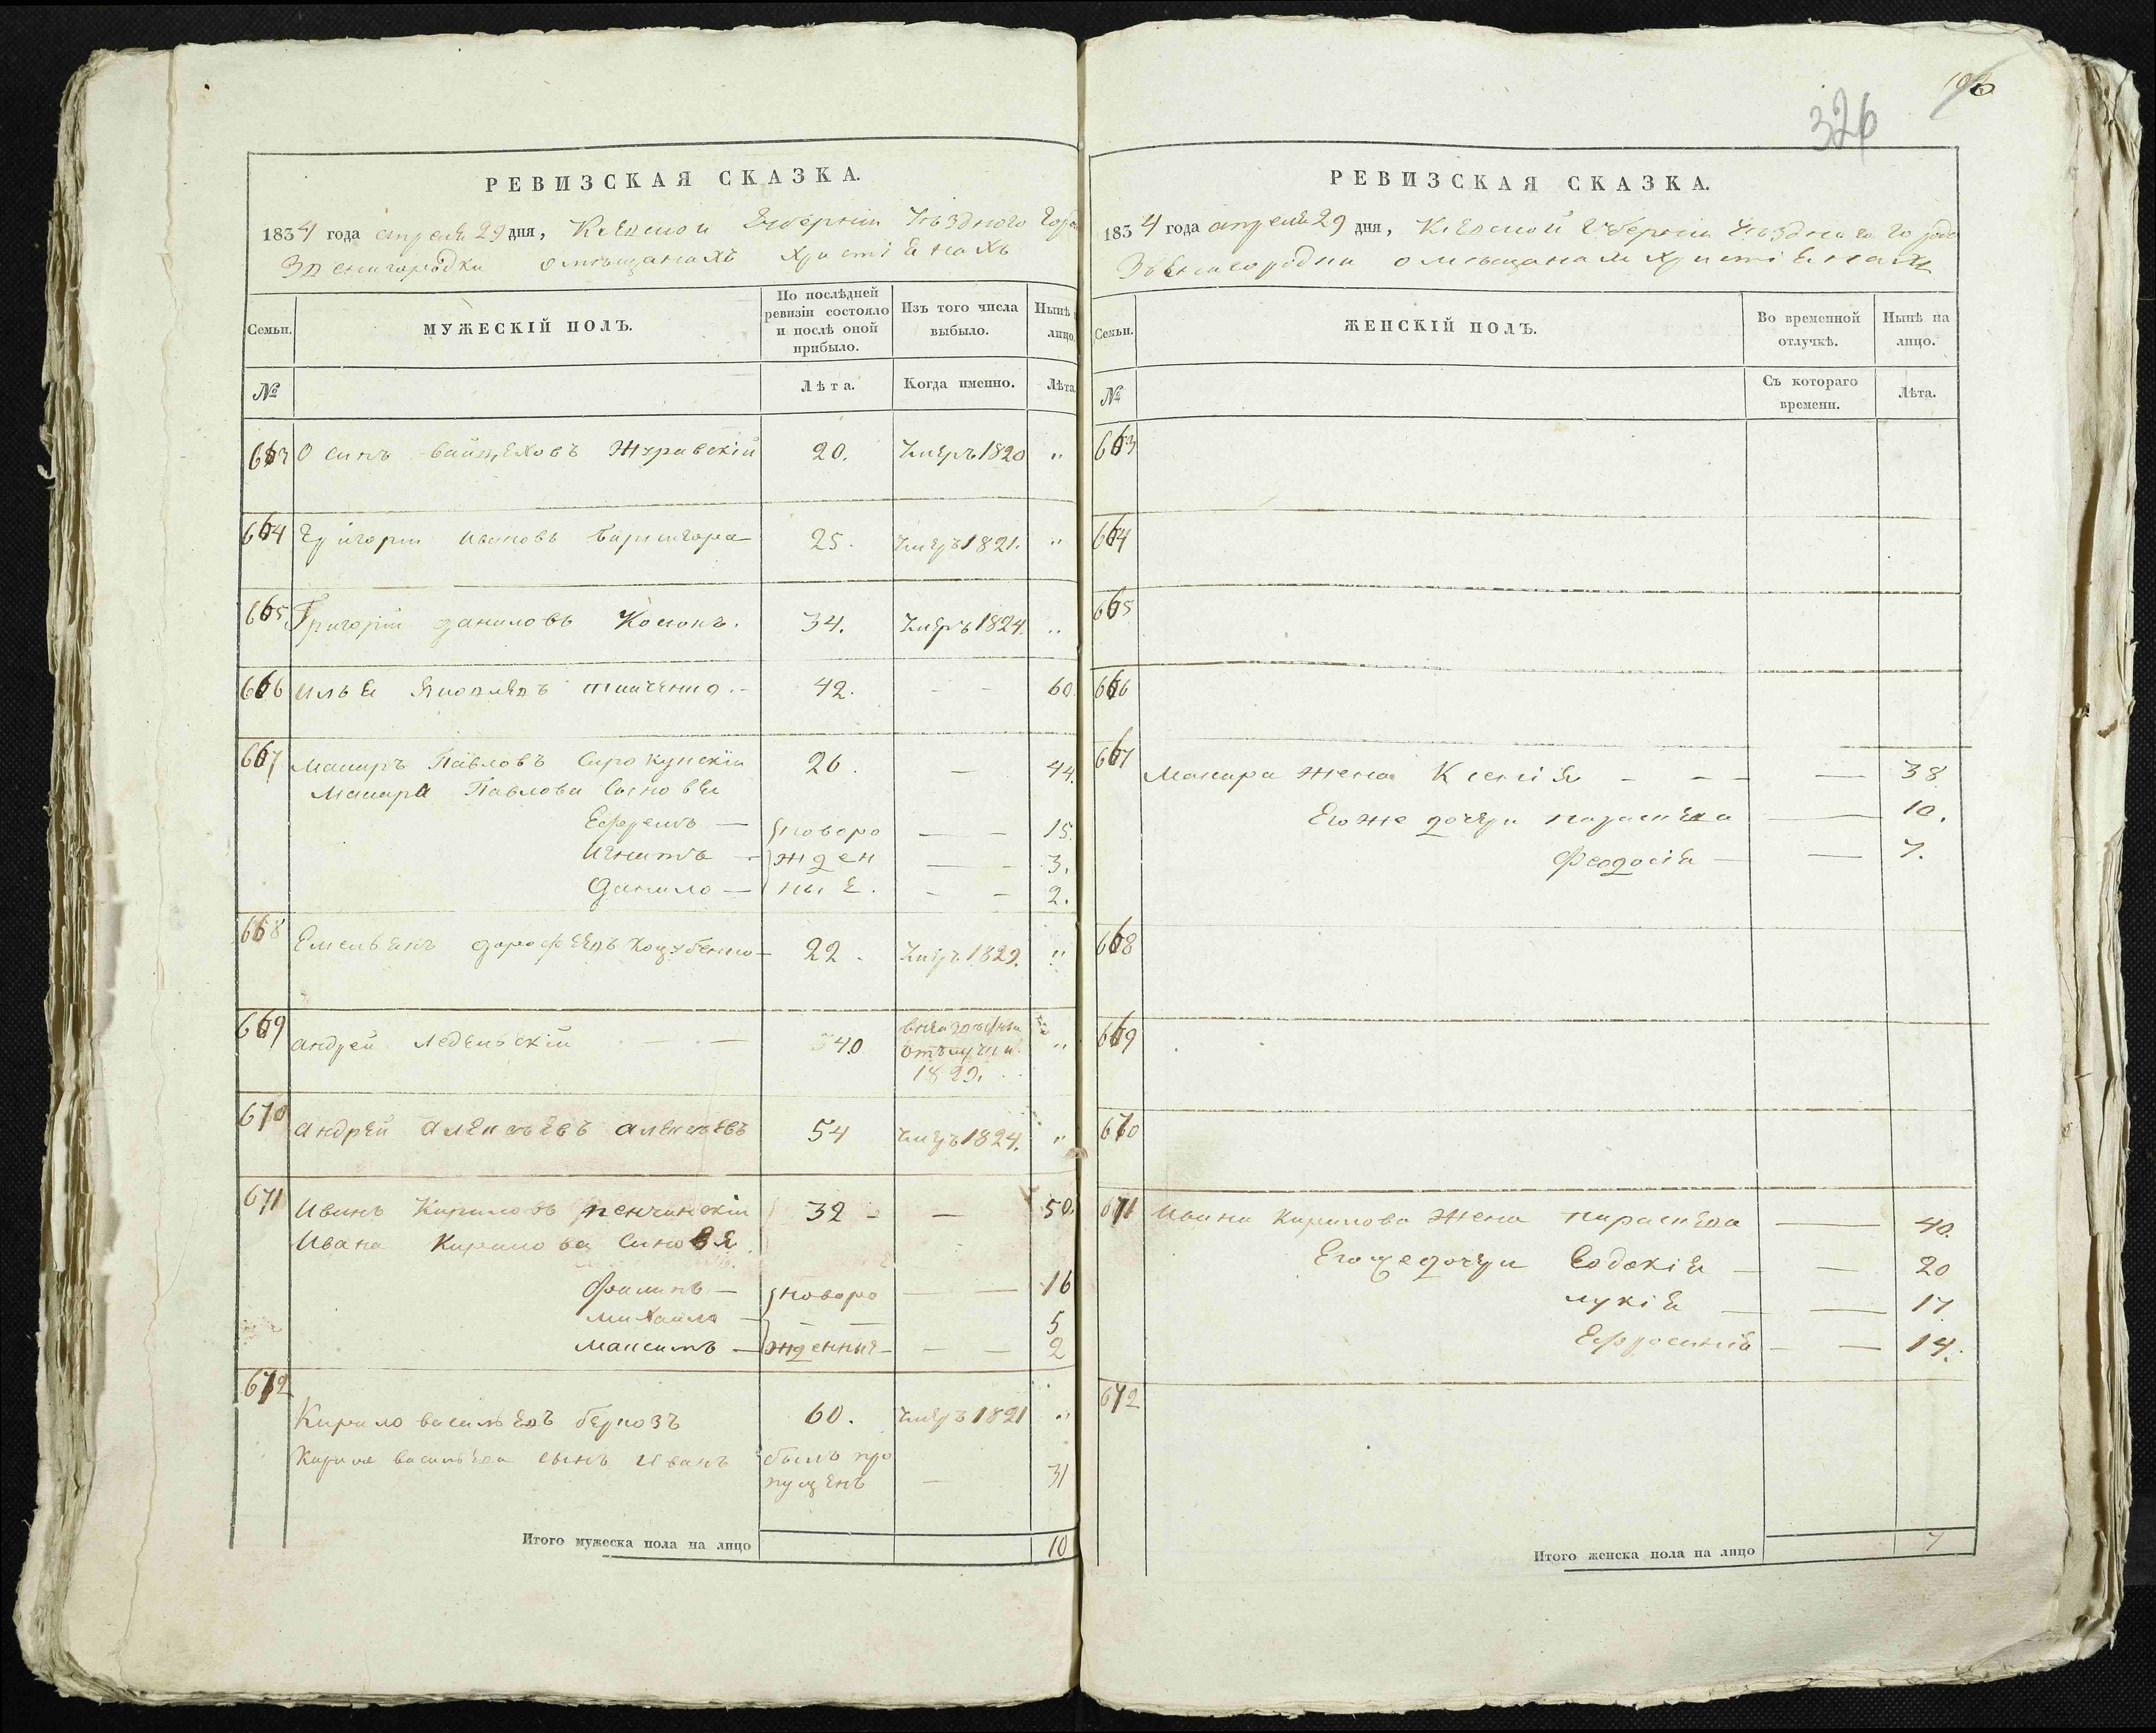 РЕВИЗСКАЯ СКАЗКА.
1834 года апреля 29 дня, Киевской Губерніи Уѣзднаго Горо
Звенигородки о мѣщанахъ христіянахъ
Семьи.
МУЖЕСКІЙ ПОЛЪ.
По послѣдней ревизіи состояло и послѣ оной прибыло.
Изъ того числа выбыло.
Нынѣ
лицо.
№
Лѣта.
Когда именно.
Лѣта
663 Осипъ Войцеховъ Журавскій 20. Умеръ 1820 "
664 Григорій Ивановъ 25. Умеръ 1821. "
665 Григорій Даниловъ 34. Умеръ 1824. "
666 Илья Яковлевъ 42. - - 60.
667 Макаръ Павловъ 26. — 44.
Макара Павлова Сыновья
Ефремъ — новоро — — 15.
Игнатъ — жден — - 3.
Данило — ные. - - 2.
668 Емельянъ Дорофеевъ 22. Умеръ 1829. "
669 Андрей — — 40 1829. "
670 Андрей Алексѣевъ Алексѣевъ 54 Умеръ 1824. "
671 Иванъ Кириловъ 32 - — 50.
Ивана Кирилова Синовя
Филипъ — новоро — — 16
Михайло — — — 5
Максимъ — жденные - — — 2
672
Кирило Васильевъ 60. Умеръ 1821 "
Кирила Васильева сынъ Иванъ былъ про
пущенъ — 31
Итого мужеска пола на лицо 10
326
РЕВИЗСКАЯ СКАЗКА.
1834 года апреля 29 дня, Киевской Губерніи Уѣзднаго Горо
Звенигородки о мѣщанахъ христіянахъ
Семьи.
ЖЕНСКІЙ ПОЛЪ.
Во временной отлучкѣ.
Нынѣ на лицо.
№
Съ котораго времени.
Лѣта.
663
664
665
666
667 Макара жена Ксенія - - - — 38
Его же дочери Параскева — 10.
Феодосія — — 7.
668
669
670
671 Ивана Кирилова Жена Параскева — 40.
Его же дочери Евдокія — — 20
Лукія — — 17.
Ефросинія - — 14.
672
Итого женска пола на лицо 7